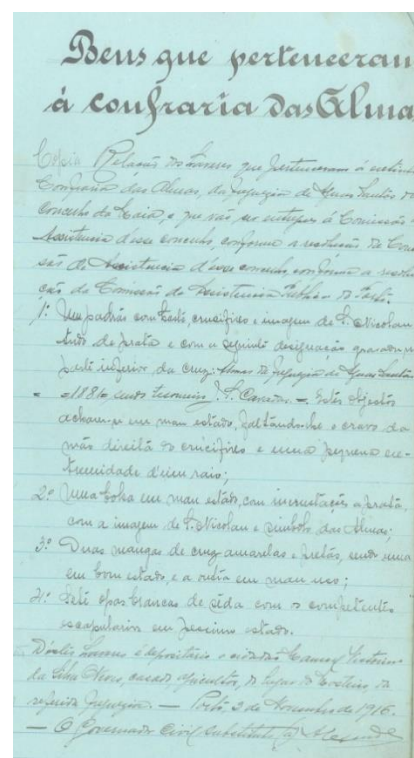 Bens que pertenceram
á confraria das Almas
Copia Relação dos haveres que pertenceram á extincta
Confraria das Almas, da freguezia de Aguas Santas do
concelho da Maia, e que vão ser entregues á Comissão
Assistencia d'esse concelho, conforme a resolução da Comis
são de Assistencia d'esse concelho, conforme a resolu
ção da Comissão de Assistencia Publica do Porto.
1º Um padrão com haste, crucifixo e imagem de S. Nicolau
tudo de prata e com a seguinte designação gravada na
parte inferior da cruz: Almas da freguezia de Aguas Santas
- =1886 sendo tesoureiro J. S. = Estes objectos
acham-se em mau estado, faltando-lhe o cravo da
mão direita do crucifixo e uma pequena ex-
tremidade d'um raio;
2º Uma bolsa em mau estado, com incrustações a prata,
com a imagem de S. Nicolau e simbolo das Almas;
3º Duas mangas de cruz amarelas e pretas, sendo uma
em bom estado, e a outra em mau uso;
4º Sete opas brancas de sêda com os competentes
escapularios em pessimo estado.
D'estes haveres é depositario o cidadão Manoel
da Silva Neves, casado, do lugar do
referida freguezia. — Porto 3 de Novembro de 1916.
— O Governador Civil substituto (a)